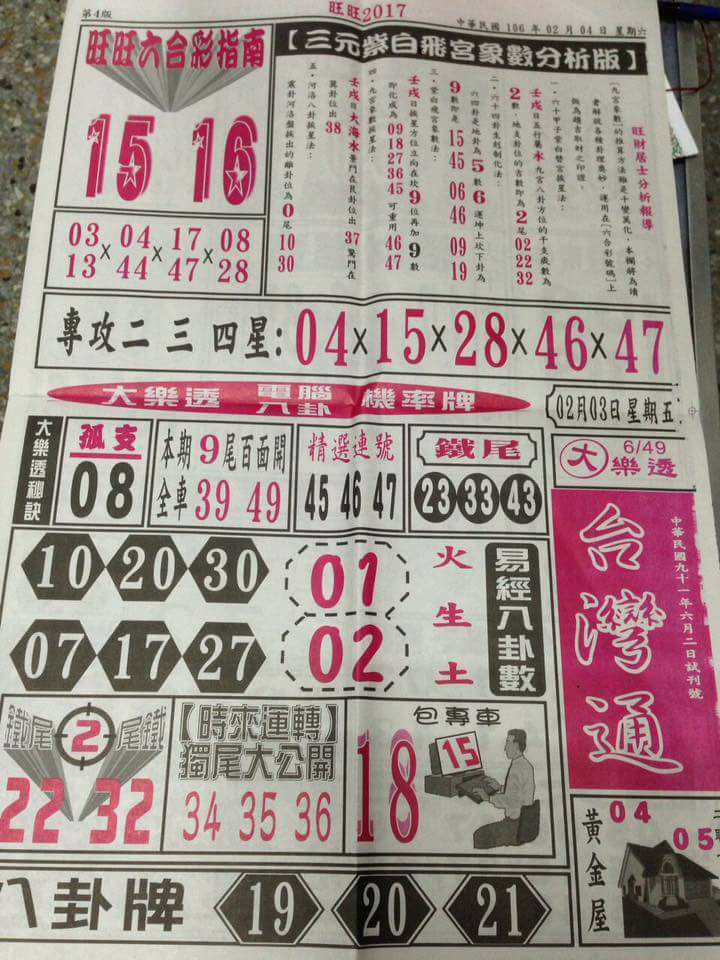 第4版
旺旺2017
中華民國106年02月04日星期六
旺旺六合彩指南
15 16
03 × 04 × 17 × 08
13 44 47 28
【三元紫白飛宮象數分析版】
旺財居士分析報導
〔九宮象數〕的推算方法雖是千變萬化,本欄將為讀
者解說各種卦理奧妙,運用在〔六合彩號碼〕上
做為趨吉取財之印證。
一、六十甲子紫白替宮挨星法:
壬戌日五行屬水九宮八卦方位的干支歲數為
2數,地支卦位的吉數即為2尾 02 22 32
二、六十四卦生剋制化法:
六四卦是地卦為5數6運坤上坎下卦為
9數即是 15 45 06 46 09 19
三、紫白飛宮象數法:
壬戌日挨星方位立向在坎9位再加9數
即化成為 09 18 27 36 45 可重用 46 47
四、九宮象數挨星法:
壬戌日大海水景門在艮卦位出 37 驚門在
巽卦位出 38
五、河洛八卦挨星法:
震卦河洛盤挨出的離卦位為0尾 10 30
專攻二三四星:04×15×28×46×47
大樂透 電腦八卦 機率牌
02月03日星期五
大樂透秘訣
孤支
08
本期9尾百面開
全車39 49
精選連號
45 46 47
鐵尾
23 33 43
6/49
大樂透
10 20 30
07 17 27
01
02
火生土
易經八卦數
台灣通
中華民國九十一年六月二日試刊號
鐵尾 2 尾鐵
22 32
【時來運轉】
獨尾大公開
34 35 36
包專車
18
15
黃金屋
04
05
八卦牌
19 20 21